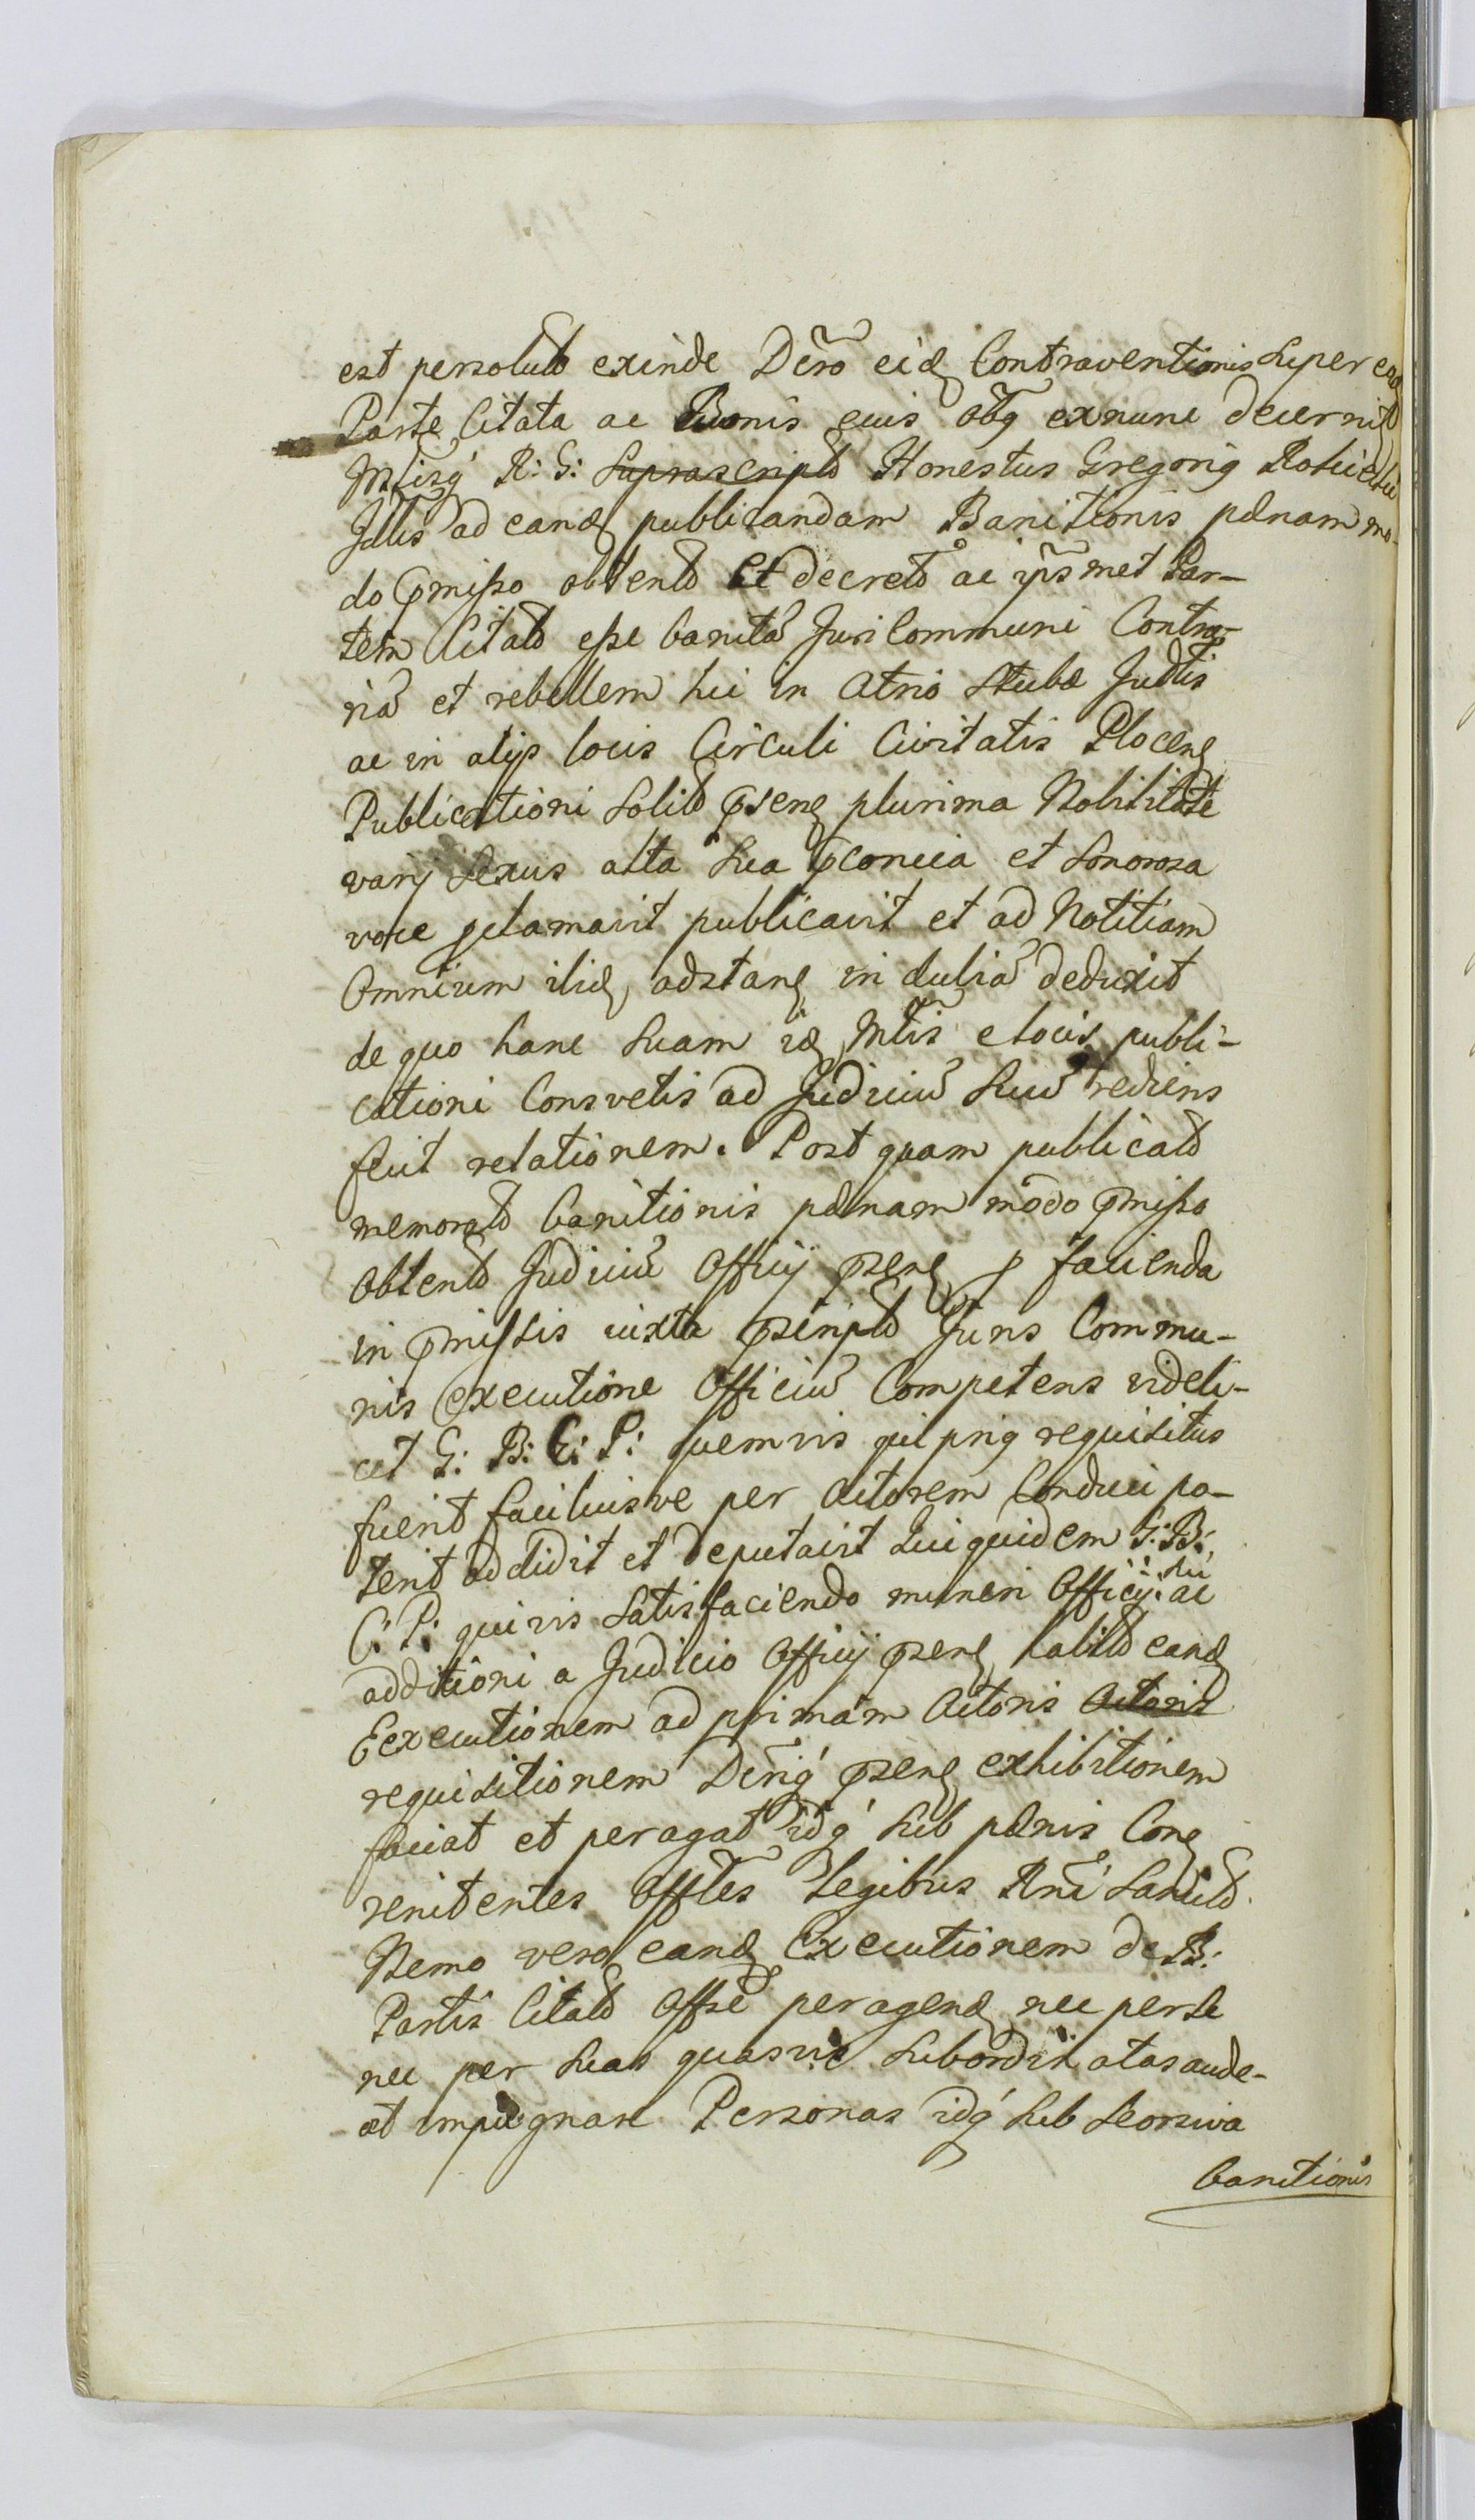 est persolut exinde Dēro eid Contraventionis super ead
Parte Citata ac Bonis eius obq exnunc decernit
Mtisq́ R: G: Suprascript Honestus Gregorig
Jdtis ad eand publicandam Banitionis pænam mo-
do pmisso obtent Et decret ac ipsmet Par-
tem Citat esse banitā Juri Communi Contra-
riā et rebellem hic in Atrio Stubæ Judtis
ac in alijs locis Circuli Civitatis Plocen
Publicationi Solit psen plurima Nobilitate
varij Sexus alta sua pconica et Sonorosa
voce pclamavit publicavit et ad Notitiam
Omnium ibid adstan in dubiā deduxit
de quo hanc suam id Mtis e locis publi-
cationi Consvetis ad Judiciū suū rediens
fecit relationem. Post quam publicat
memorat banitionis pænam modo pmisso
obtent Judiciū Officij psen p facienda
in pmissis iuxta pscript Juris Commu-
nis Executione Officiū Competens videli-
cet G: B: C: P: quemvis qui prig requisitus
fuerit faciliusve per Actorem Conduci po-
terit addidit et deputavit Qui quidem G: B:
C: P: quivis Satisfaciendo muneri Officij sui ac
additioni a Judicio Officij psen habit eand
Eexecutionem ad primam Actoris Actoris
requisitionem Dēriq́ psen exhibitionem
faciat et peragat idq́ sub pænis Con
renitentes Offtes Legibus Rni Sancit
Nemo vero eand Executionem de B:
Partis Citat Offse peragend nec per se
nec per suas quasvis Subordinatas aude-
at impugnare Personas idq́ sub Seorsiva
banitionis